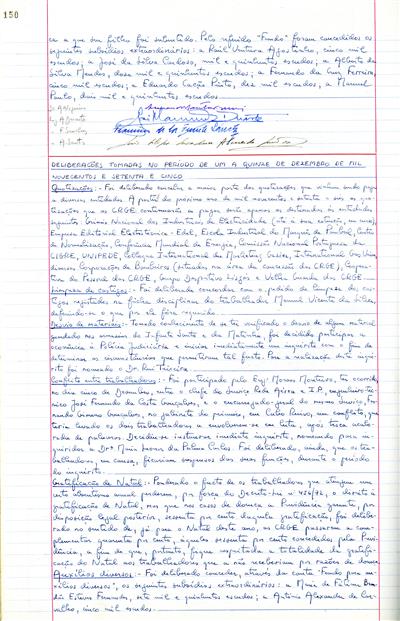 150
ca a que seu filho foi submetido. Pelo referido "Fundo" foram concedidos os
seguintes subsídios extraordinários: a Raúl Ventura Agostinho, cinco mil
escudos; a José da Silva Cardoso, mil e quinhentos escudos; a Alberto da
Silva Mendes, doze mil e quinhentos escudos; a Fernando da Luz Ferreira,
cinco mil escudos; a Eduardo Cação Pinto, dez mil escudos; a Manuel
Paulo, dois mil e quinhentos escudos.
DELIBERAÇÕES TOMADAS NO PERÍODO DE UM A QUINZE DE DEZEMBRO DE MIL
NOVECENTOS E SETENTA E CINCO
Quotizações:- Foi deliberado cancelar a maior parte das quotizações que vinham sendo pagas
a diversas entidades. A partir do próximo ano de mil novecentos e setenta e seis as quo-
tizações que as CRGE continuarão a pagar serão apenas as destinadas às entidades
seguintes: Grémio Nacional dos Industriais de Electricidade (até à sua extinção, em curso),
Empresa Editorial Electrotécnica - Edel, Escola Industrial do Marquês de Pombal, Centro
de Normalização, Conferência Mundial da Energia, Comissão Nacional Portuguesa da
CIGRE, UNIPEDE, Colloque International de Marketing Gazier, International Gas Union,
diversas Corporações de Bombeiros (situadas na área de concessão das CRGE), Coopera-
tiva do Pessoal das CRGE, Grupo Desportivo Lisgás e Velha Guarda das CRGE.
Limpeza de castigos:- Foi deliberado concordar com o pedido de limpeza dos cas-
tigos registados na ficha disciplinar do trabalhador Manuel Vicente da Silva,
deferindo-se o que por ele fora requerido.
Desvio de materiais:- Tomado conhecimento de se ter verificado o desvio de algum material
guardado nos armazéns do I. Parte Santo e da Matinha, foi decidido participar a
ocorrência à Polícia Judiciária e iniciar imediatamente um inquérito com o fim de
determinar as circunstâncias que permitiram tal furto. Para a realização deste inqué-
rito foi nomeado o Dr. Rui Teixeira.
Conflito entre trabalhadores:- Foi participado pelo Engº Moraes Monteiro, ter ocorrido,
no dia cinco de Dezembro, entre o chefe do Serviço Rede Aérea e I.P., engenheiro téc-
nico José Fernando da Costa Gonçalves, e o encarregado geral do mesmo serviço, Fer-
nando Génaro Gonçalves, no gabinete do primeiro, em Cabo Ruivo, um conflito, que
teria levado os dois trabalhadores a envolverem-se em luta, após troca acalo-
rada de palavras. Decidiu-se instaurar imediato inquérito, nomeando para in-
quiridora a Drª Maria Isaura da Palma Carlos. Foi deliberado, ainda, que os tra-
balhadores, em causa, ficariam suspensos das suas funções, durante o período
do inquérito.
Gratificação de Natal:- Ponderado o facto de os trabalhadores que atinjam um
certo absentismo anual perderem, por força do Decreto-Lei nº 456/72, o direito à
gratificação de Natal, mas que nos casos de doença a Previdência garante, por
disposição legal posterior, sessenta por cento daquela gratificação, foi delibe-
rado no sentido de, já para o Natal deste ano, as CRGE passarem a com-
plementar quarenta por cento, àqueles sessenta por cento concedidos pela Previ-
dência, a fim de que, portanto, fique respeitada a totalidade da gratifi-
cação do Natal aos trabalhadores que a não receberiam por razões de doença.
Auxílios diversos:- Foi deliberado conceder, através da conta Fundo para "Au-
xílios diversos", os seguintes subsídios extraordinários: a Maria de Fátima Bran-
dão Esteves Fernandes, sete mil e quinhentos escudos; a António Alexandre de Car-
valho, cinco mil escudos.